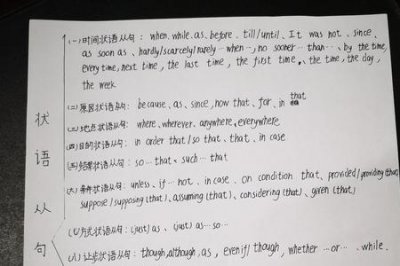 状语从句
(一)时间状语从句: when. while. as. before. till/until、It was not、since、
as soon as、hardly/scarcely/rarely…when…, no sooner…than…、by the time,
every time, next time, the last time, the first time、the time, the day,
the week
(二)原因状语从句: because、as、since, now that、for、in that
(三)地点状语从句: where、wherever、anywhere、everywhere
(四)目的状语从句: in order that/so that、that、in case
(五)结果状语从句: so…that、such…that
(六)条件状语从句: unless、if…not、in case、on condition that、provided/providing that
suppose/supposing (that)、assuming (that)、considering (that)、given (that)
(七)方式状语从句: (just) as、(just) as…so…
(八)让步状语从句: though, although, as、even if/though、whether…or…、while.